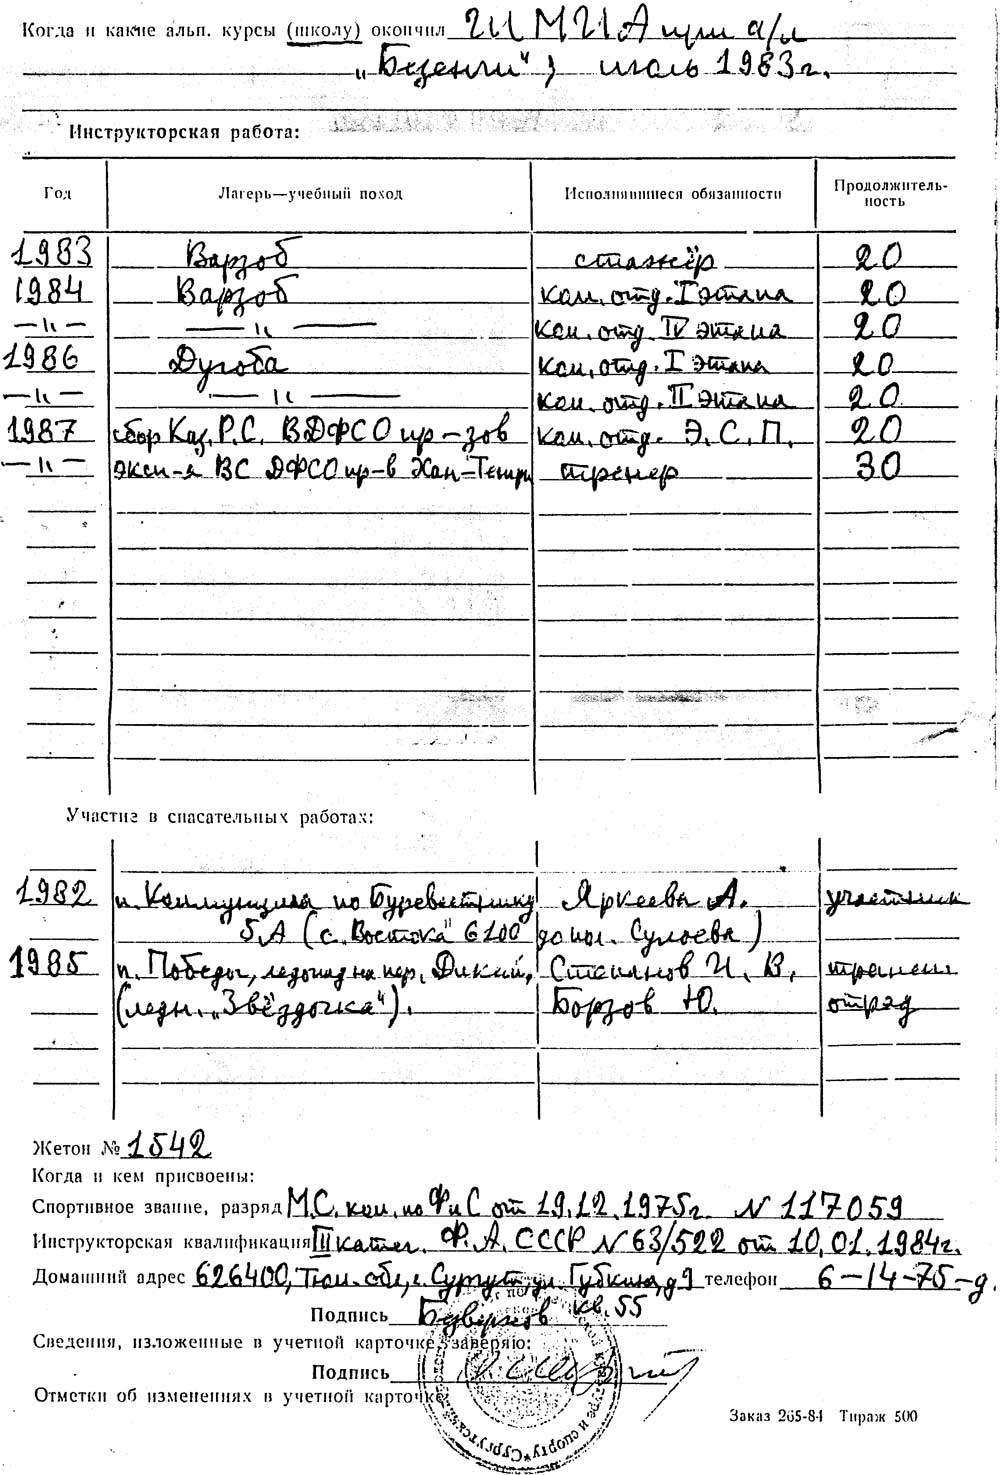 Когда и какие альп. курсы (школу) окончил ЦШМИ при а/л
„Безенги“, июль 1983г.
Инструкторская работа:
Год Лагерь—учебный поход Исполнявшиеся обязанности Продолжительность
1983 Варзоб стажёр 20
1984 Варзоб ком. отд. I этапа 20
—〃— —〃— ком. отд. IV этапа 20
1986 Дугоба ком. отд. I этапа 20
—〃— —〃— ком. отд. II этапа 20
1987 сбор Каз. Р.С. ВДФСО пр-зов ком. отд. Э.С.П. 20
—〃— экси-я ВС ДФСО пр-в Хан-Тенгри тренер 30
Участие в спасательных работах:
1982 п. Коммунизма по Буревестнику Яркеева А. участник
5А (с „Востока“ 6100 до пол. Сулоева)
1985 п. Победы, ледопад на пер. Дикий, Степанов И. В. трансп
(ледн. „Звёздочка“). Борзов Ю. отряд
Жетон № 1542
Когда и кем присвоены:
Спортивное звание, разряд М.С. ком. по ФиС от 19.12.1975г. N 117059
Инструкторская квалификация III катег. Ф.А. СССР N 63/522 от 10.01.1984г.
Домашний адрес 626400, Тюм. обл., г. Сургут, ул. Губкина, д 9 телефон 6-14-75-д.
кв. 55
Подпись Безверхов
Сведения, изложенные в учетной карточке, заверяю:
Подпись
Отметки об изменениях в учетной карточке
Заказ 265-84 Тираж 500